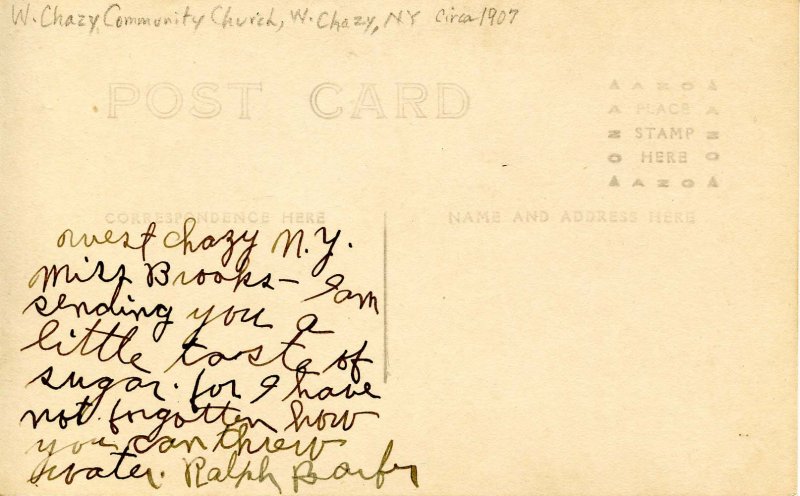 W. Chazy Community Church, W. Chazy, NY circa 1907
POST CARD
AZO
PLACE
STAMP
HERE
AZO
CORRESPONDENCE HERE
NAME AND ADDRESS HERE
West Chazy N.Y.
Miss Brooks— I am
sending you a
little taste of
sugar. for I have
not forgotten how
you can threw
water. Ralph